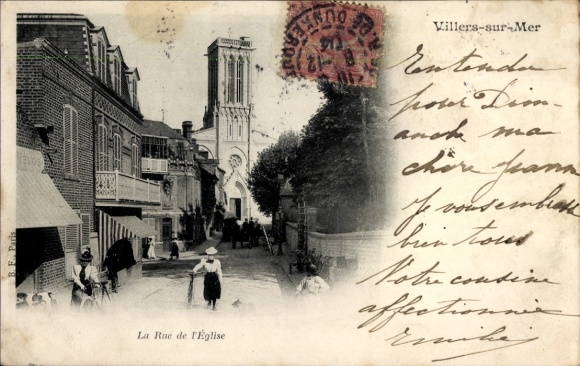 Villers-sur-Mer
DUNKERQUE
Entendu
pour Dim-
anche ma
chère Jeanne
Je vous embrasse
bien tous
Votre cousine
affectionnée
Emilie
B. F. Paris
La Rue de l'Église